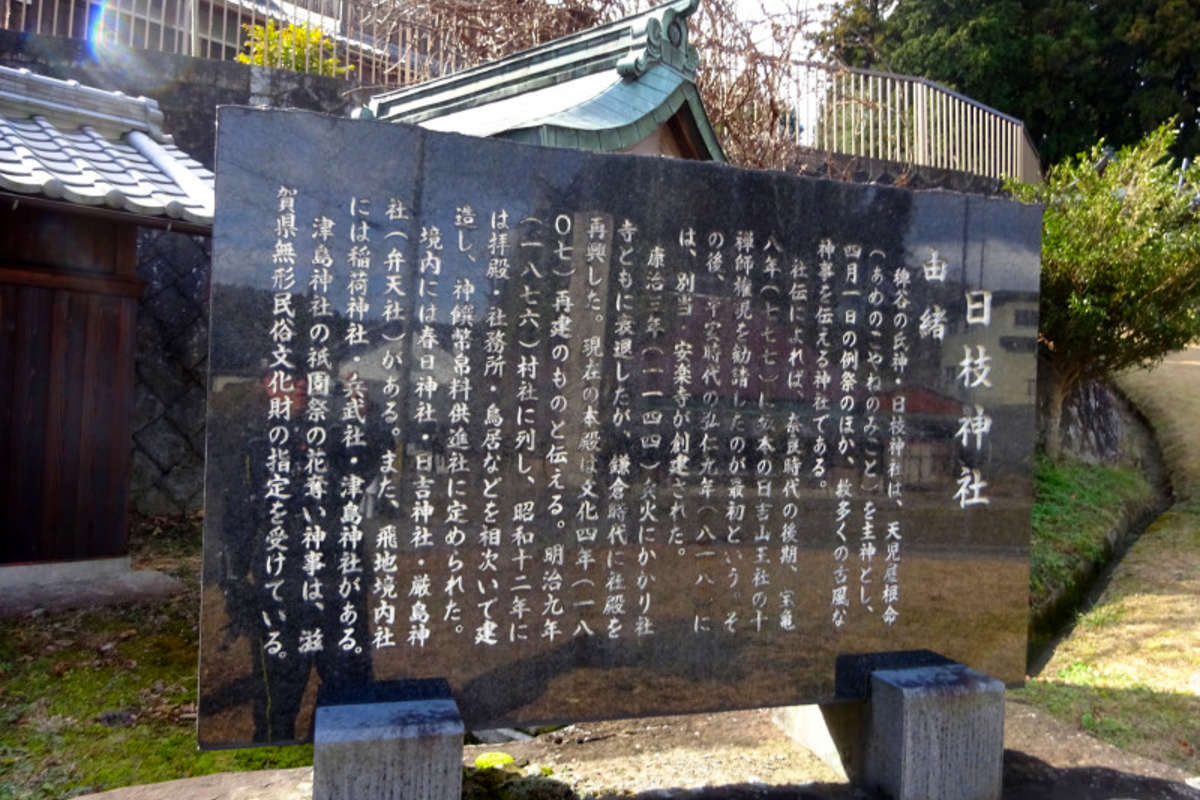 日枝神社
由緒
穂谷の氏神・日枝神社は、天児屋根命
(あめのこやねのみこと)を主神とし、
四月一日の例祭のほか、数多くの古風な
神事を伝える神社である。
社伝によれば、奈良時代の後期、宝亀
八年(七七七)に坂本の日吉山王社の十
禅師権現を勧請したのが最初という。そ
の後、平安時代の弘仁九年(八一八)に
は、別当・安楽寺が創建された。
康治三年(一一四四)兵火にかかり社
寺ともに衰退したが、鎌倉時代に社殿を
再興した。現在の本殿は文化四年(一八
〇七)再建のものと伝える。明治九年
(一八七六)村社に列し、昭和十二年に
は拝殿・社務所・鳥居などを相次いで建
造し、神饌幣帛料供進社に定められた。
境内には春日神社・日吉神社・厳島神
社(弁天社)がある。また、飛地境内社
には稲荷神社・兵武社・津島神社がある。
津島神社の祇園祭の花奪い神事は、滋
賀県無形民俗文化財の指定を受けている。